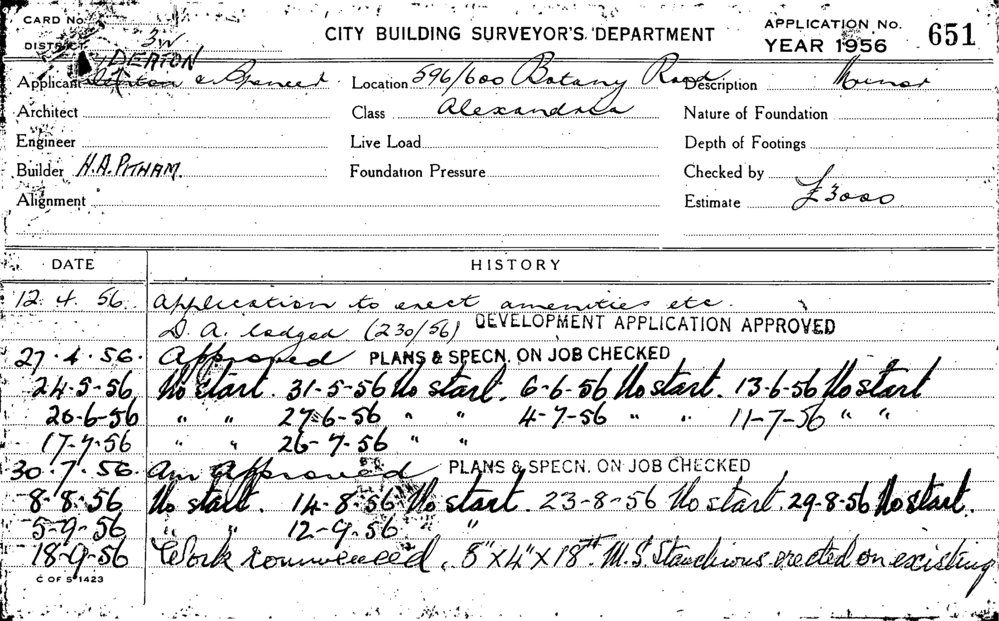 CARD No.
CITY BUILDING SURVEYOR'S DEPARTMENT
APPLICATION No. 651
DISTRICT 3W
YEAR 1956
DERTON
Applicant & Spencer Location 596/600 Botany Road Description Minor
Architect Class Alexandria Nature of Foundation
Engineer Live Load Depth of Footings
Builder H.A. PITHAM. Foundation Pressure Checked by
Alignment Estimate £3000
DATE HISTORY
12. 4. 56. Application to erect amenities etc.
D.A. lodged (230/56) DEVELOPMENT APPLICATION APPROVED
27. 4. 56. Approved PLANS & SPECN. ON JOB CHECKED
24-5-56 No start. 31-5-56 No start. 6-6-56 No start. 13-6-56 No start
20-6-56 " " 27-6-56 " " 4-7-56 " " 11-7-56 " "
17-7-56 " " 26-7-56 " "
30. 7. 56. Am Approved PLANS & SPECN. ON JOB CHECKED
8-8-56 No start. 14-8-56 No start. 23-8-56 No start. 29-8-56 No start.
5-9-56 " " 12-9-56 " "
18-9-56 Work commenced. 8"X4"X18 M.S. Stanchions erected on existing
C OF S 1423